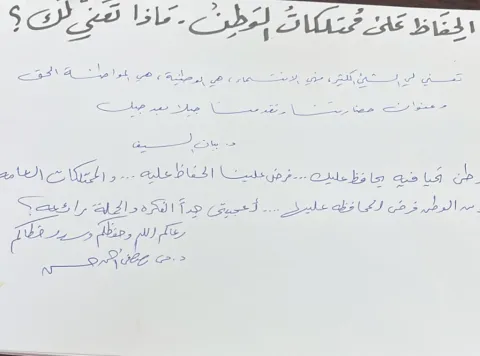 الحِفَاظ عَلىٰ مُمتَلكَاتُ الوَطِنْ. مَاذا تَعَني لَكْ ؟
تعني لي الشيئ الكثير، هي الانتماء، هي الوطنية، هي المواطنة الحق
وعنوان حضارتنا وتقدمنا جيلا بعد جيل
د. بيان السيف
وطن تحيا فيه يحافظ عليك ... فرض علينا الحفاظ عليه ... والممتلكات العامه
من الوطن فرض المحافظه عليها ... أعجبتني جداً الفكره والحملة رائعة ؟
رعاكم الله وحفظكم وسدد خطاكم
د. مصطفى أحمد حسن